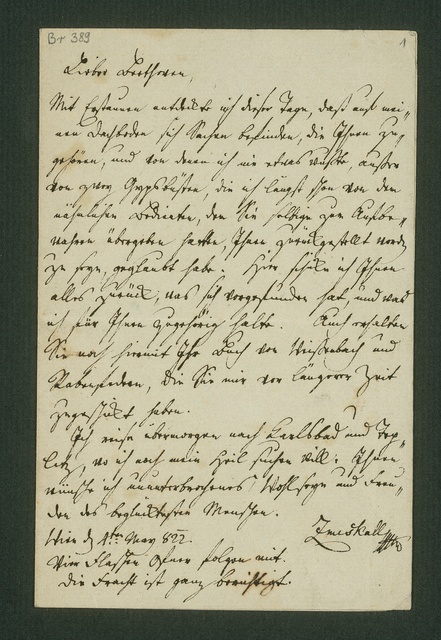 Br 389
1
Lieber Beethoven,
Mit Erstaunen entdeckte ich dieser Tage, daß auf mei-
nem Dachboden sich Sachen befinden, die Ihnen zu-
gehören, und von denen ich nie etwas wußte außer
von zwey Gypsbüsten, die ich längst schon von dem
nähmlichen Bedienten, dem Sie selbige zum Aufbe-
wahren übergeben hatten, Ihnen zurückgestellt worden
zu seyn, geglaubt habe. Hier schicke ich Ihnen
alles zurück, was sich vorgefunden hat, und was
ich für Ihnen zugehörig halte. Auch erhalten
Sie noch hiermit Ihr Buch von Weißenbach und
Rabenfedern, die Sie mir vor längerer Zeit
zugeschickt haben.
Ich reise übermorgen nach Karlsbad und Töp-
litz, wo ich noch mein Heil suchen will. Ihnen
wünsche ich ununterbrochenes Wohlseyn und Freu-
den des beglücktesten Menschen.
Wien den 4ten May 822. Zmeskall
Vier Flaschen Ofner folgen mit.
Die Fracht ist ganz berichtigt.